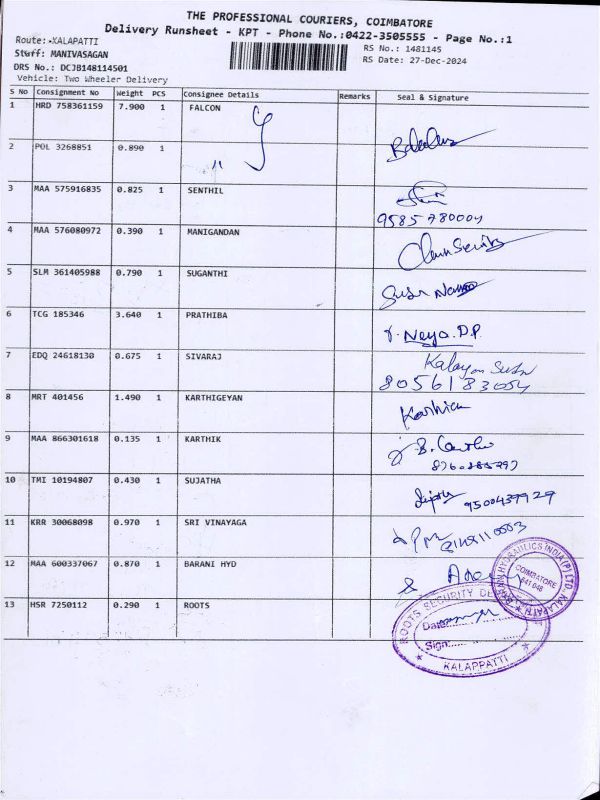 THE PROFESSIONAL COURIERS, COIMBATORE
Delivery Runsheet - KPT - Phone No.:0422-3505555 - Page No.:1
Route:-KALAPATTI
Staff: MANIVASAGAN
DRS No.: DCJB148114501
Vehicle: Two Wheeler Delivery
RS No.: 1481145
RS Date: 27-Dec-2024
S No Consignment No Weight PCS Consignee Details Remarks Seal & Signature
1 HRD 758361159 7.900 1 FALCON
2 POL 3268851 0.890 1 "
3 MAA 575916835 0.825 1 SENTHIL
9585780004
4 MAA 576080972 0.390 1 MANIGANDAN
5 SLM 361405988 0.790 1 SUGANTHI
6 TCG 185346 3.640 1 PRATHIBA Neya.D.P.
7 EDQ 24618130 0.675 1 SIVARAJ Kalayan
8056183054
8 MRT 401456 1.490 1 KARTHIGEYAN
9 MAA 866301618 0.135 1 KARTHIK
10 TMI 10194807 0.430 1 SUJATHA 9500439729
11 KRR 30068098 0.970 1 SRI VINAYAGA
12 MAA 600337067 0.870 1 BARANI HYD
HYDRAULICS INDIA (P) LTD, KALAPATTI
COIMBATORE
641 048
13 HSR 7250112 0.290 1 ROOTS
ROOTS SECURITY
Date
Sign
KALAPPATTI